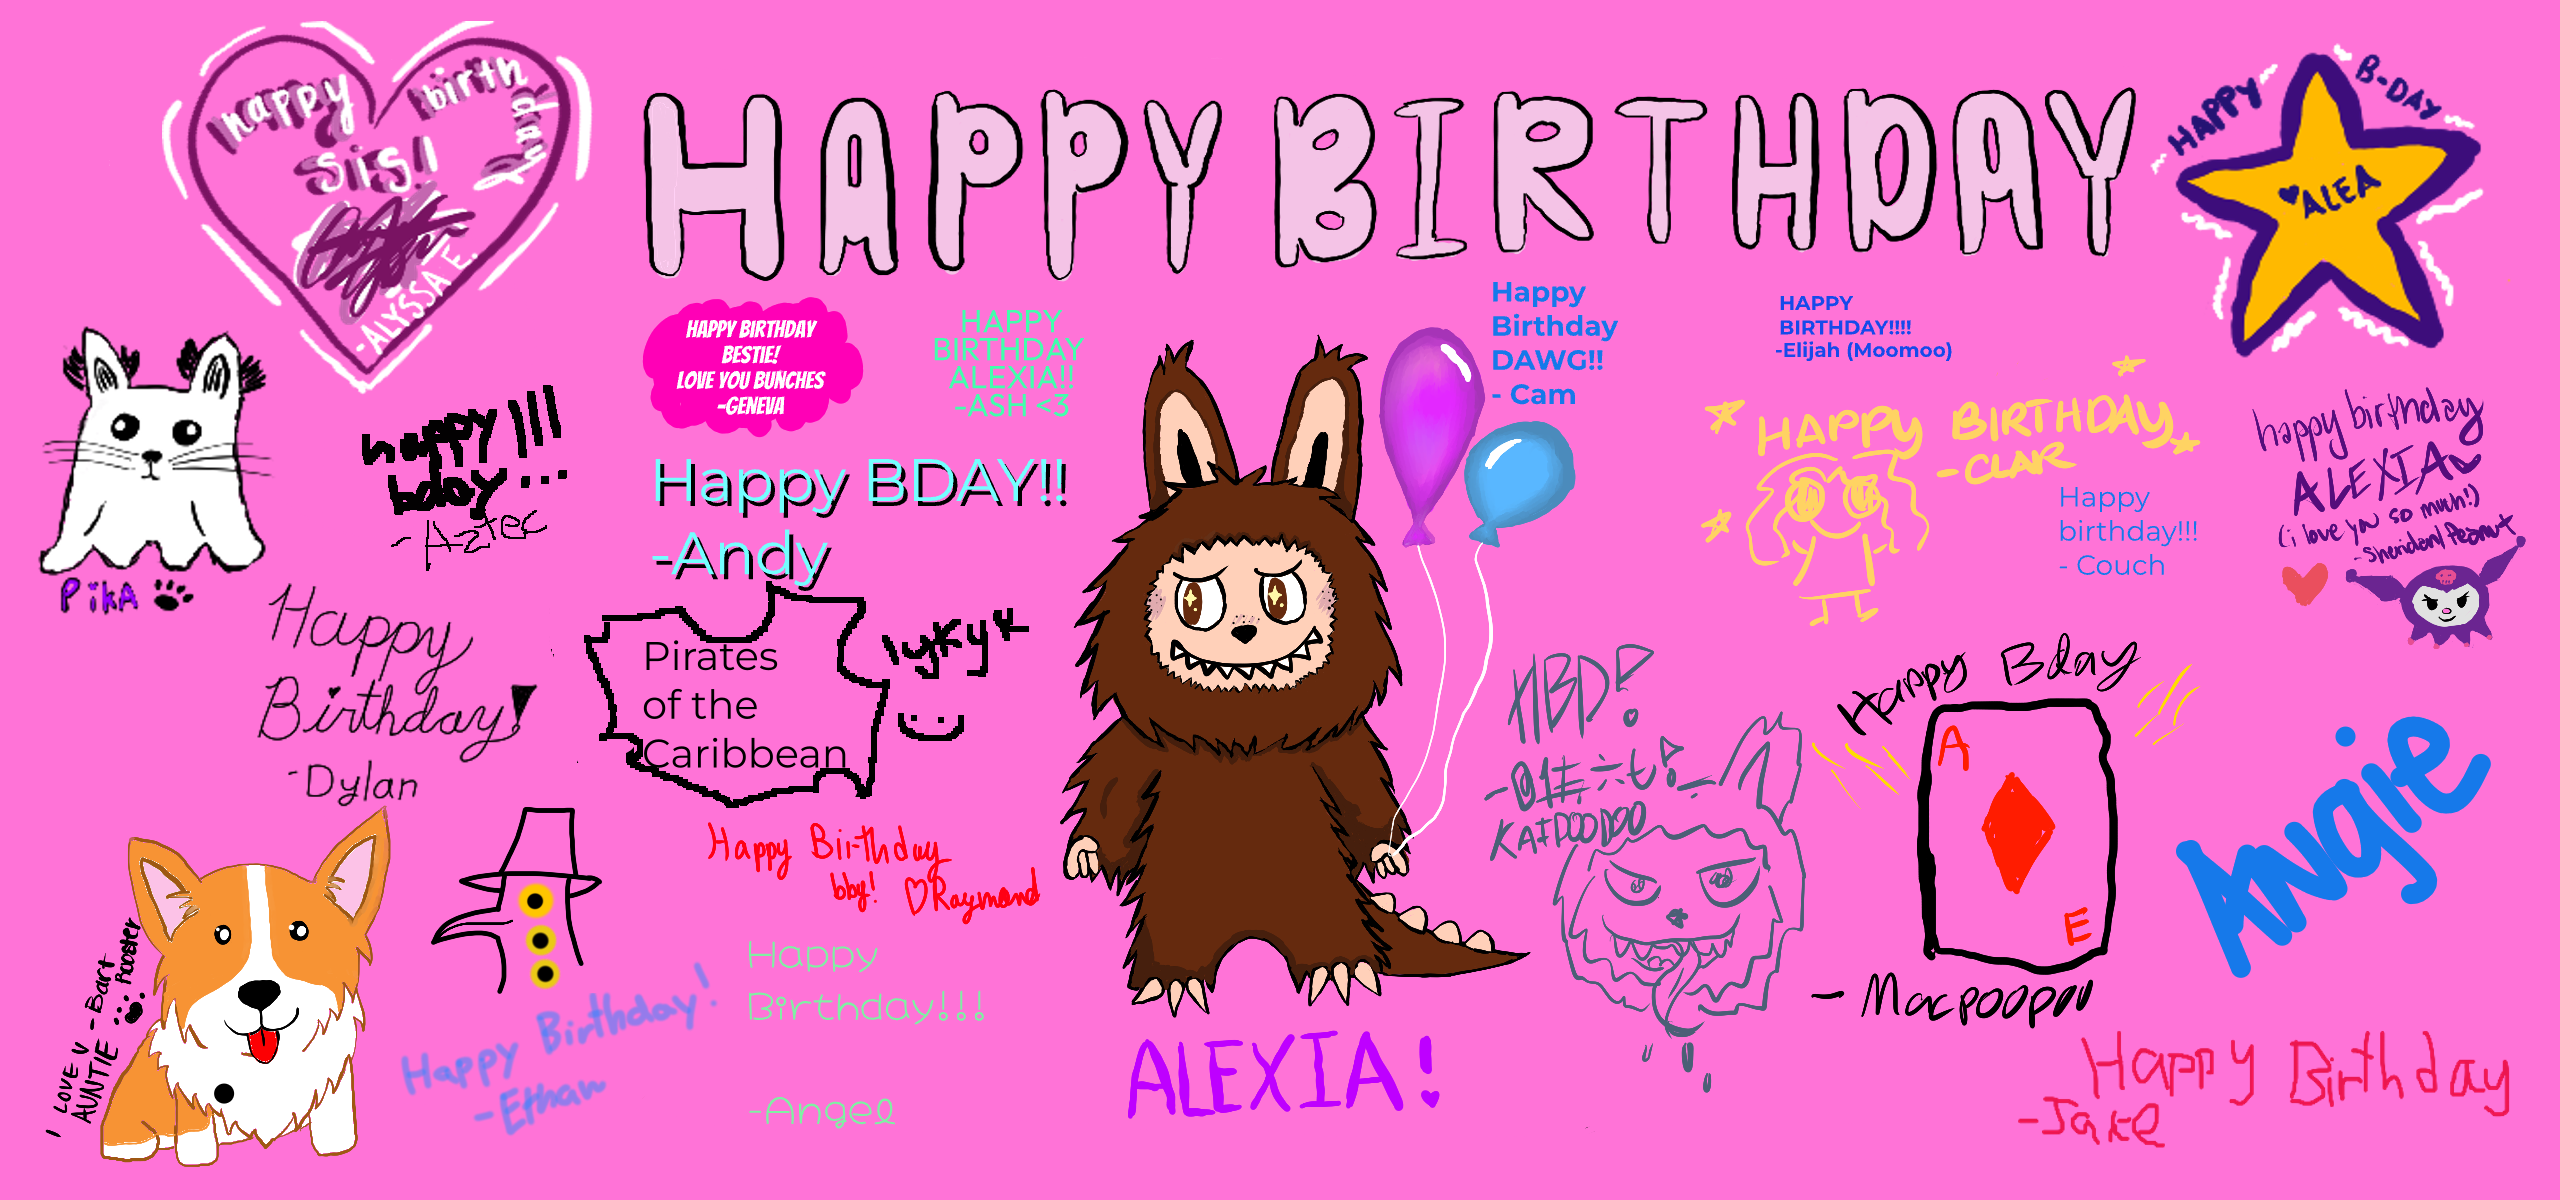 happy birthday
sis!
-ALYSSA E.
HAPPY BIRTHDAY
HAPPY B-DAY
♥ALEA
HAPPY BIRTHDAY
BESTIE!
LOVE YOU BUNCHES
-GENEVA
HAPPY
BIRTHDAY
ALEXIA!!
-ASH <3
Happy
Birthday
DAWG!!
- Cam
HAPPY
BIRTHDAY!!!!
-Elijah (Moomoo)
happy!!!
bday...
-Aztec
Happy BDAY!!
-Andy
HAPPY BIRTHDAY
-CLAR
Happy
birthday!!!
- Couch
happy birthday
ALEXIA
(i love you so much!)
-Sheriden/Peanut
PikA
Happy
Birthday!
-Dylan
Pirates
of the
Caribbean
iykyk
:)
HBD!
KAIDOODOO
Happy Bday
A
E
-Macpoopoo
Angie
Happy Birthday
bby!
♡Raymond
I LOVE U
AUNTIE
-Bart
Rooster
Happy Birthday!
-Ethan
Happy
Birthday!!!
-Angel
ALEXIA!
Happy Birthday
-Jake